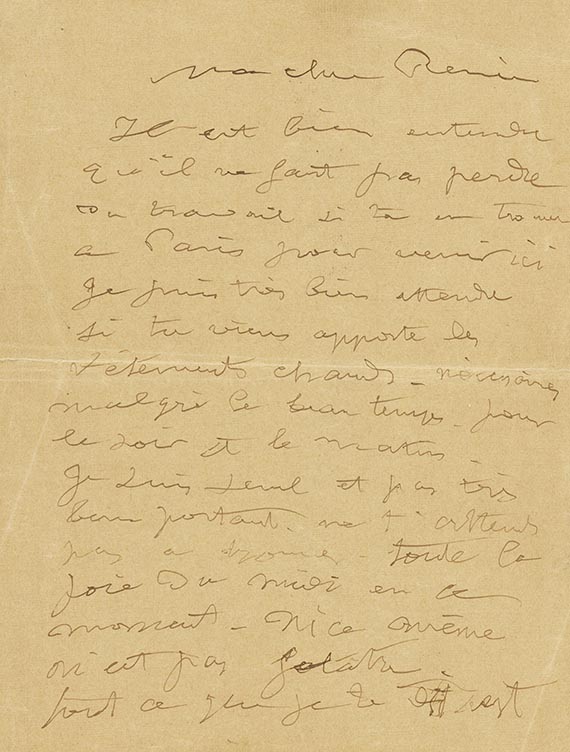 Ma chère Renée
Il est bien entendu
qu'il ne faut pas perdre
du travail si tu en trouves
a Paris pour venir ici
Je puis très bien attendre
si tu viens apporte les
vêtements chauds - nécessaires
malgré le beau temps - pour
le soir et le matin -
Je suis seul et pas très
bien portant. ne t'attends
pas a trouver - toute la
joie du midi en ce
moment - Nice même
n'est pas folâtre -
tout ce que je te dis est